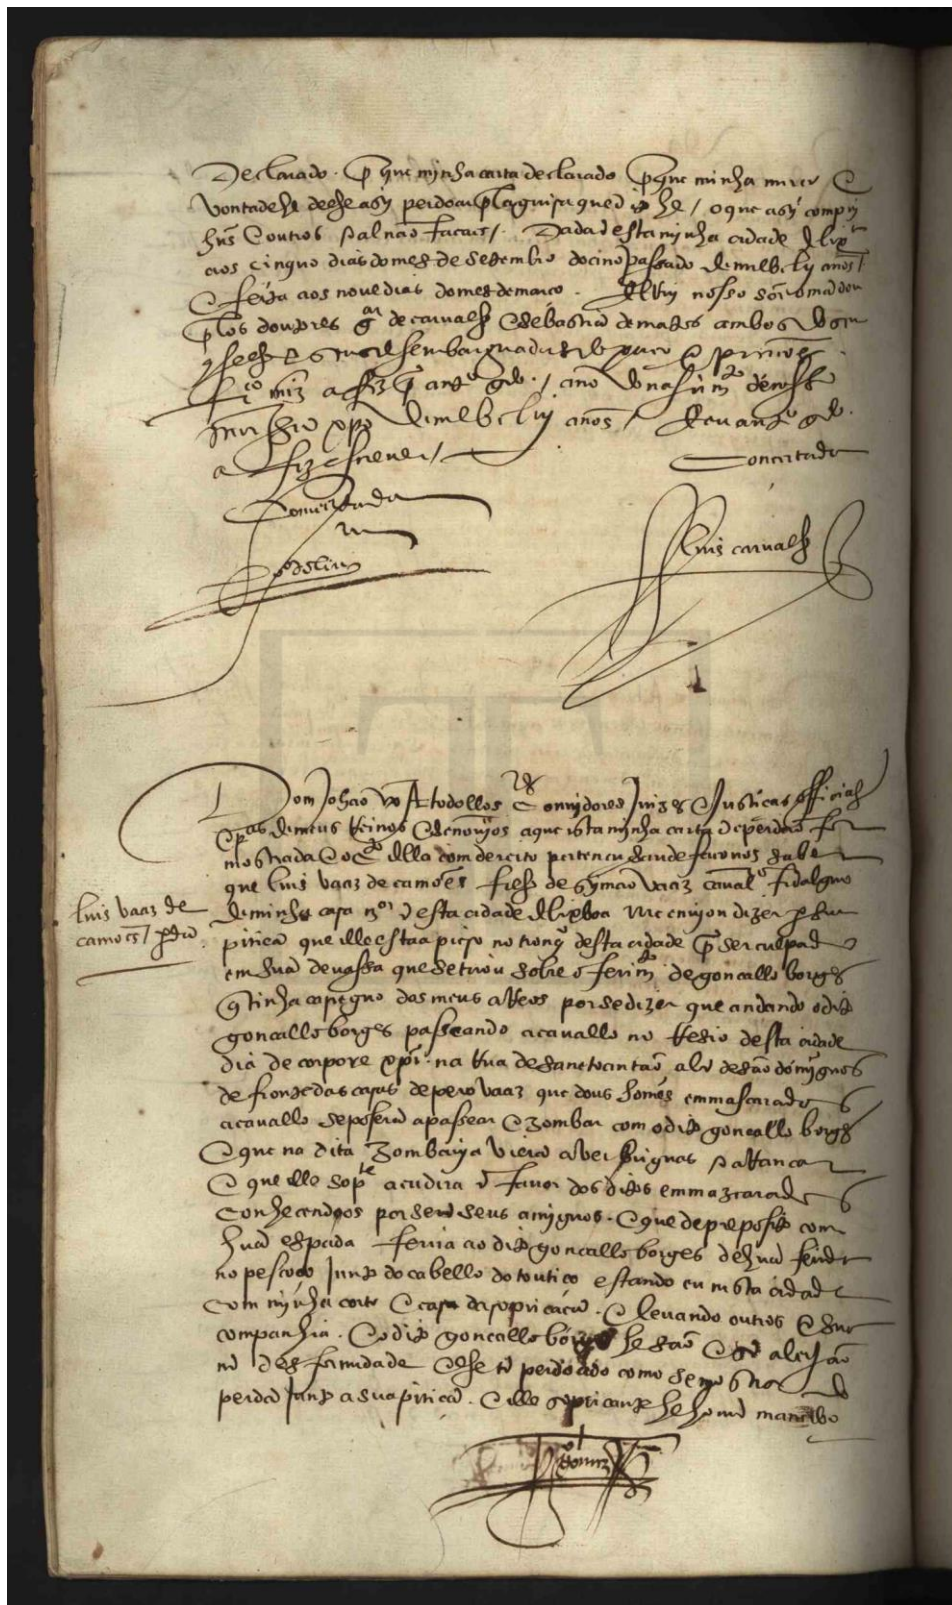 Declarado . p que mynha carta declarado p que minha merce e
vontade he de lhe asy perdoar pla guisa que dito he / o que asy compri
hũs e outros e al nao façais / . Dada desta minha cidade de lixa
aos cinquo dias do mes de setembro do ano passado de mil bc lij anos /
e feita aos nove dias do mes de março . El Rey nosso sõr o mandou
plos doutores gar de carvalho e sebastiã de matos ambos do seu
e seus desembarguadores do paço e pitições .
a fez p antº gdo . / ano do nasimto de nosso
xpõ de mil bc liij anos / E eu antº gdo .
a fiz escrever /
Concertado
Concertada
luis carvalho
luis vaaz de
camões / pdã
Dom Johão &c A todollos Corregedores Ouvidores Juizes e Justiças officiaes
e pas de meus Reinos e senorios a que esta mynha carta de perdão for
mostrada e o cto della com dereito pertencer saude faço vos saber
que luis vaaz de camões filho de symão vaaz cavalro fidalguo
de minha casa mor desta cidade de lixboa me enviou dizer p sua
pitiçã que elle estaa preso no tronquo desta cidade p ser culpado
em hũa devassa que se tirou sobre o ferimto de goncallo borges
q tinha carreguo dos meus arreos por se dizer que andando o dito
goncallo borges passeando a cavallo no Resio desta cidade
dia de corpore xpi . na Rua de sancto antão ale de são domynguos
defronte das casas de pero vaaz que dous homẽs emmascarados
a cavallo se poserã a passear e zombar com o dito goncallo borges
e que na dita zombaria vierã aver briguas e arrancar
e que elle sopte acudira e favor dos ditos emmazcarados
conhecendoos por serẽ seus amiguos . e que de preposito com
hũa espada ferira ao dito goncallo borges de hũa ferida
no pescoço junto do cabello do toutiço estando eu nesta cidade
com mynha corte e casa da sopricaçã . e levando outros e sua
companhia . e o dito goncallo borges he são e sẽ aleijão
nẽ desformidade e lhe tẽ perdoado como se mostrava do
perdã junto a sua pitiçã . e elle sopricante he homẽ mancebo